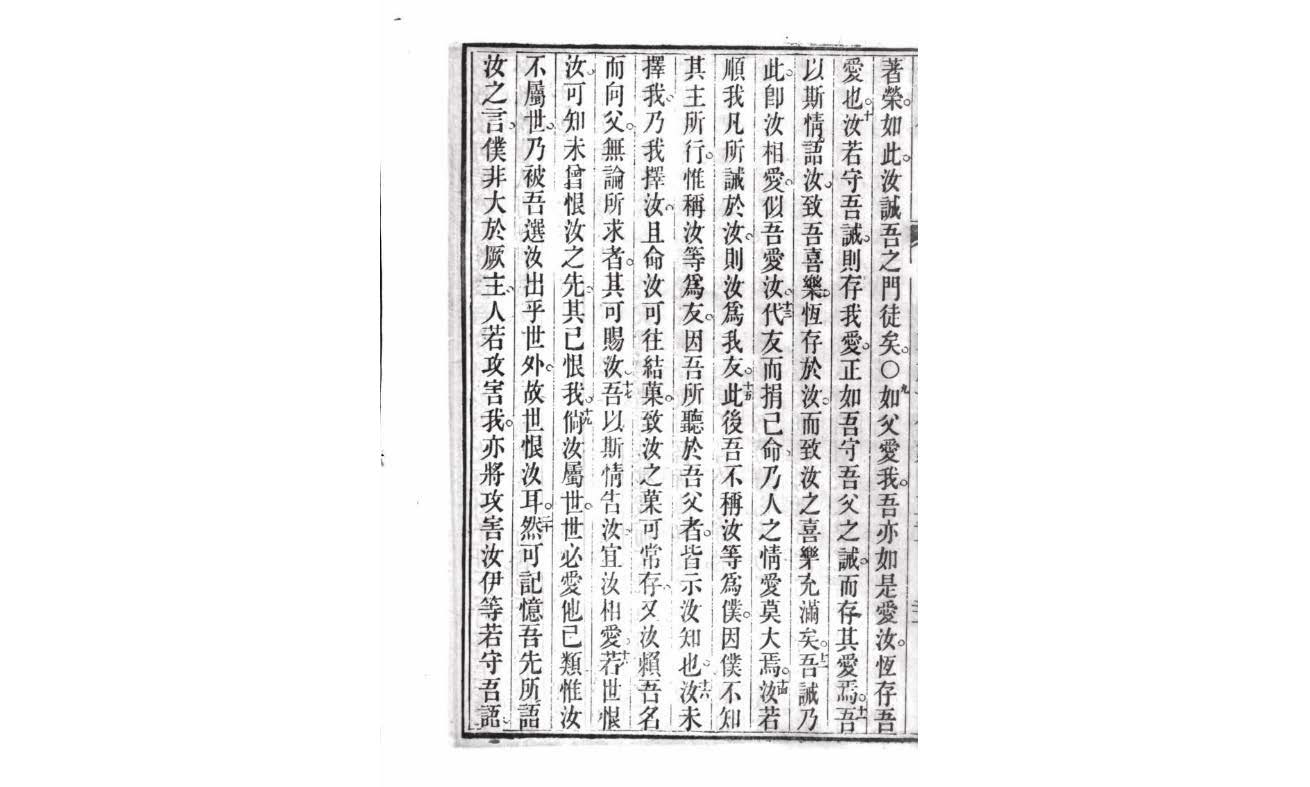 著榮。如此。汝誠吾之門徒矣。〇九如父愛我。吾亦如是愛汝。恆存吾
愛也。十汝若守吾誡。則存我愛。正如吾守吾父之誡。而存其愛焉。十一吾
以斯情語汝。致吾喜樂。恆存於汝。而致汝之喜樂充滿矣。十二吾誡乃
此。卽汝相愛。似吾愛汝。十三代友而捐己命。乃人之情愛莫大焉。十四汝若
順我凡所誡於汝。則汝爲我友。十五此後吾不稱汝等爲僕。因僕不知
其主所行。惟稱汝等爲友。因吾所聽於吾父者。皆示汝知也。十六汝未
擇我。乃我擇汝。且命汝可往結菓。致汝之菓可常存。又汝賴吾名
而向父。無論所求者。其可賜汝。十七吾以斯情告汝。宜汝相愛。十八若世恨
汝。可知未曾恨汝之先。其已恨我。十九倘汝屬世。世必愛他己類。惟汝
不屬世。乃被吾選汝出乎世外。故世恨汝耳。二十然可記憶吾先所語
汝之言。僕非大於厥主。人若攻害我。亦將攻害汝。伊等若守吾語。